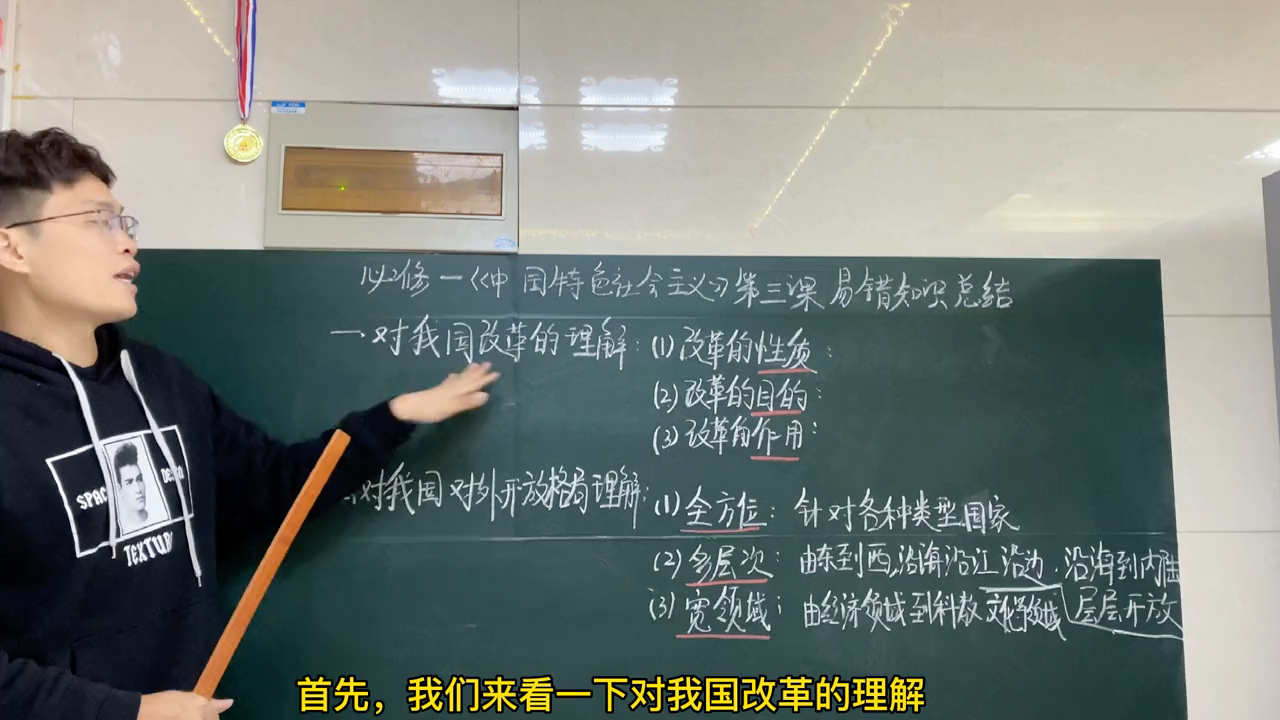 必修一《中国特色社会主义》第三课 易错知识总结
一.对我国改革的理解:(1)改革的性质:
(2)改革的目的:
(3)改革的作用:
对我国对外开放格局理解:(1)全方位: 针对各种类型国家
(2)多层次: 由东到西,沿海沿江沿边.沿海到内陆
层层开放
(3)宽领域: 由经济领域到科教文化等领域
SPAC
TEXTUR
首先，我们来看一下对我国改革的理解